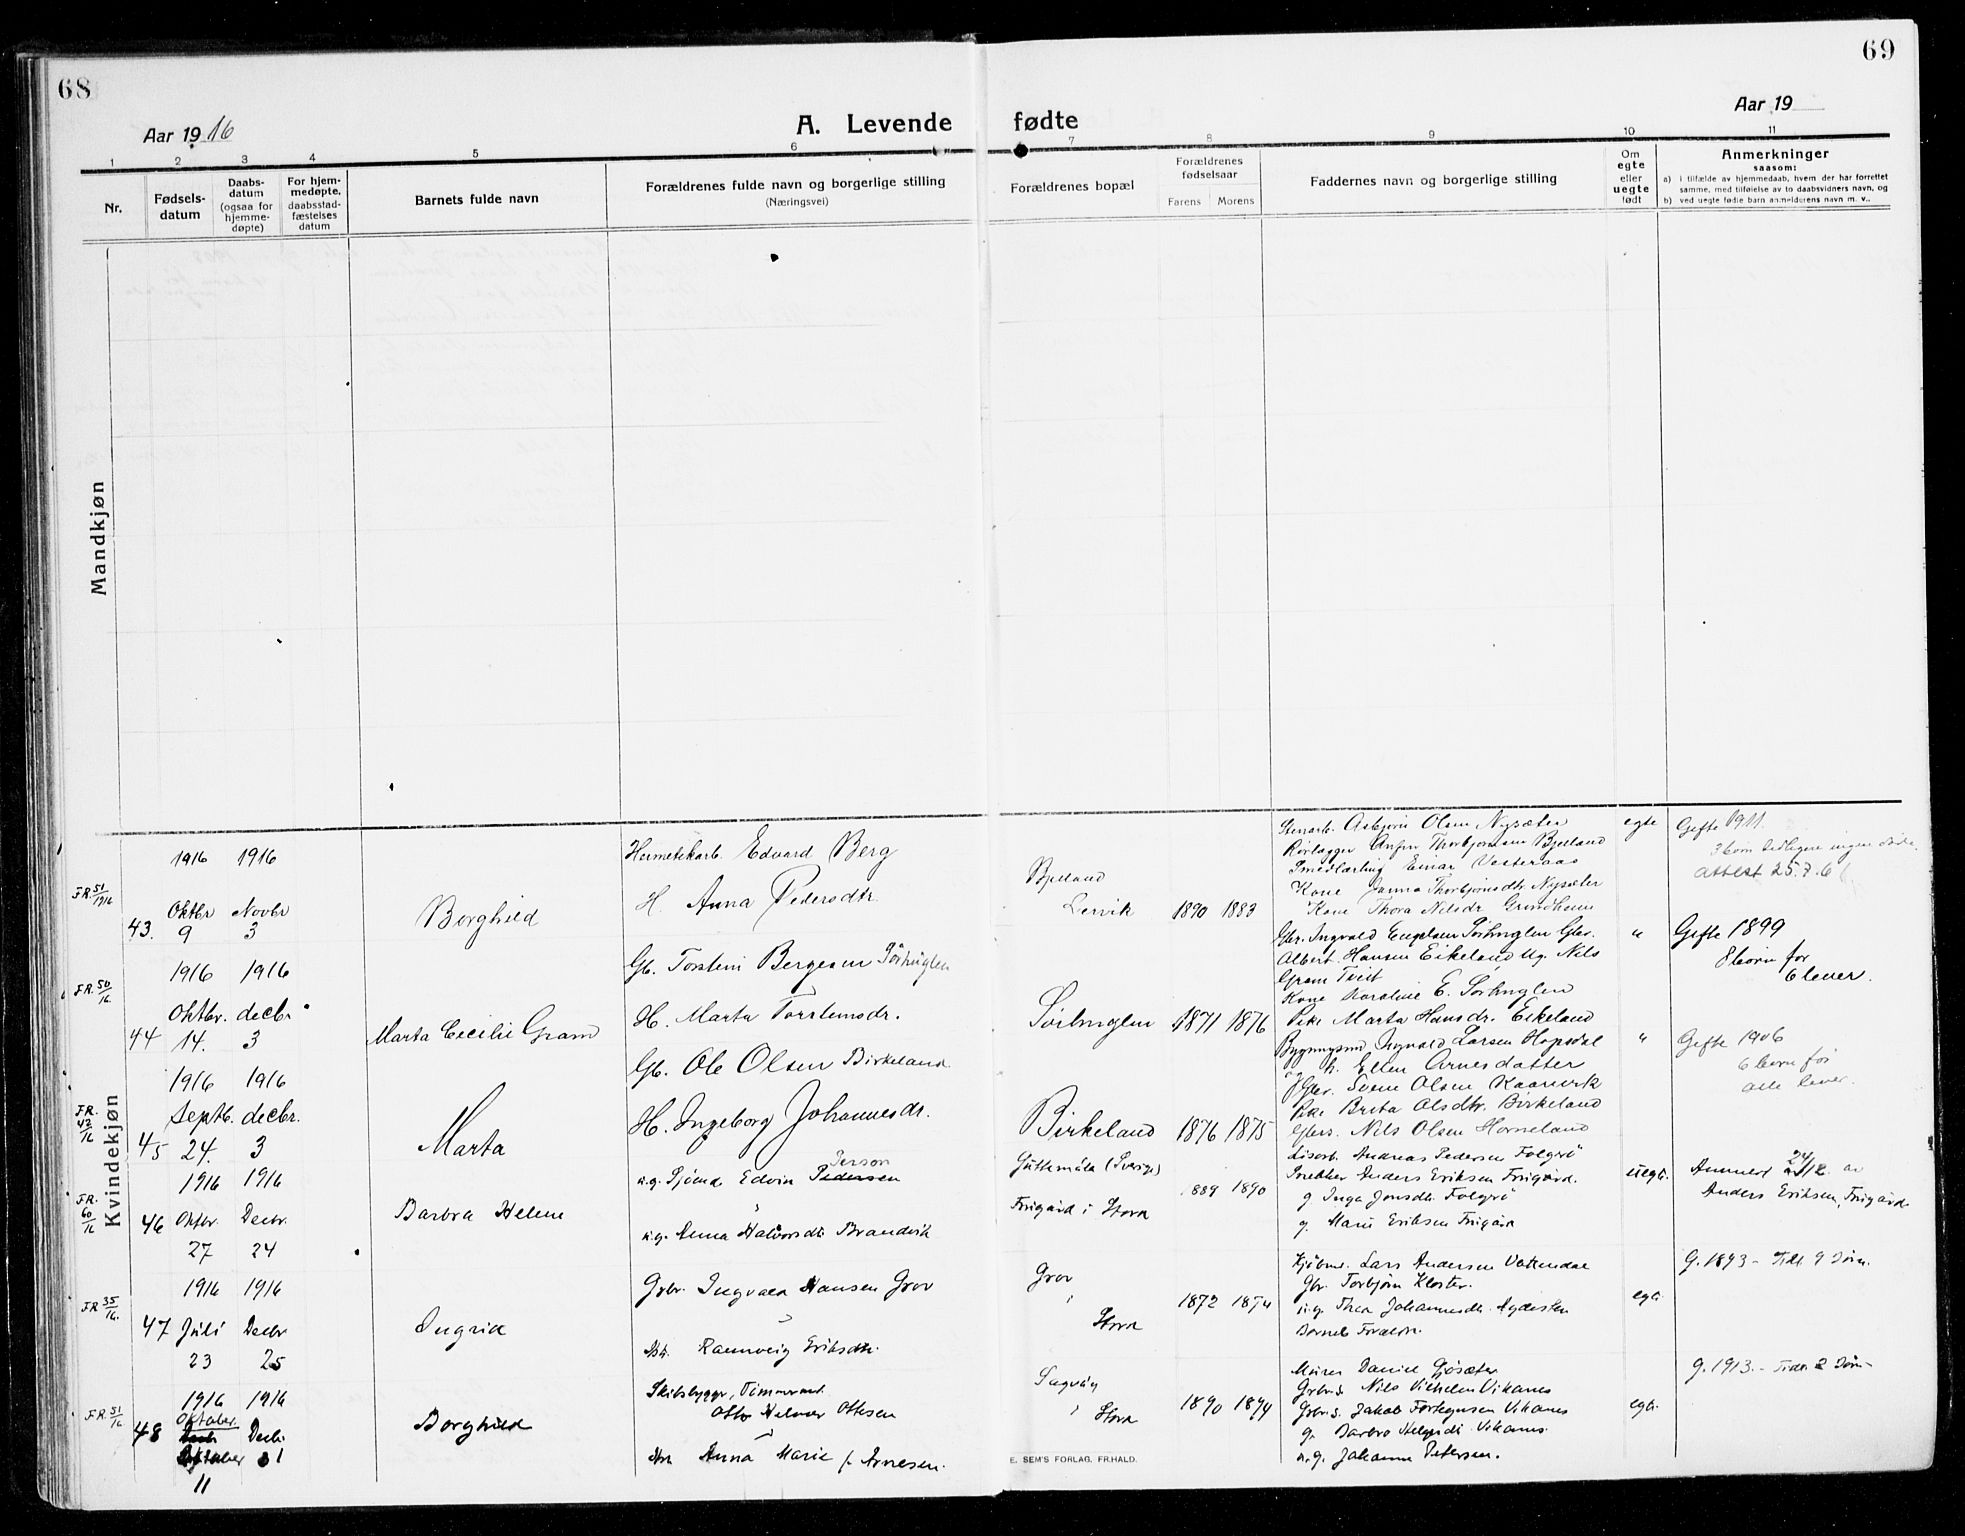 68
69
Aar 1916
A. Levende fødte
Aar 19
1 2 3 4 5 6 7 8 9 10 11
Nr.
Fødsels-
datum
Daabs-
datum
(ogsaa for
hjemme-
døpte)
For hjem-
medøpte,
daabsstad-
fæstelses
datum
Barnets fulde navn
Forældrenes fulde navn og borgerlige stilling
(Næringsvei)
Forældrenes bopæl
Forældrenes
fødselsaar
Farens Morens
Faddernes navn og borgerlige stilling
Om
egte
eller
uegte
født
Anmerkninger
saasom:
a) i tilfælde av hjemmedaab, hvem der har forrettet
samme, med tilføielse av to daabsvidners navn, og
b) ved uegte fødte barn anmelderens navn m. v..
Mandkjøn
Kvindekjøn
FR. 51/1916
43.
1916 1916
Oktbr Novbr
9 3
Borghild
Hermetikarb. Edvard Berg
H. Anna Pedersdtr.
Bjelland
Lervik
1890 1883
Stenarb. Asbjørn Olsen Nysæter
Rørlægger Anfin Thorbjørnsen Bjelland
Smedlærling Einar Vesteraas
Kone Janna Thorbjørnsdtr. Nysæter
Kone Thora Nilsdr Grindheim
egte
Gifte 1911.
attest 25.7.6
FR. 50/16.
44
1916 1916
Oktbr. decbr.
14. 3
Marta Cecilie Gram
Gb. Torstein Bergesen Sörhuglen
H. Marta Torsteinsdr.
Sörhuglen
1871 1876
Gbr. Ingvald Engelsen Sörhuglen Gbr.
Albert Hansen Eikeland Ug. Nils
Gram Tveit
Kone Karoline E. Sörhuglen
Pike Marta Hansdr. Eikeland
"
Gifte 1899
8 børn før
6 lever.
FR. 42/16
45
1916 1916
Septb. decbr.
24. 3
Marta
Gb. Ole Olsen Birkeland
H. Ingeborg Johannesdr.
Birkeland
1876 1875
Bygningssmd Ingvald Larsen Hopsdal
og h. Ellen Arnesdatter
Gbr. Svein Olsen Kaarevik
Pike Brita Olsdtr. Birkeland
Gbrs. Nils Olsen Horneland
"
Gifte 1906
6 børn før
alle lever.
FR. 60/16
46
1916 1916
Oktbr. Decbr.
27 24
Barbra Helene
u.g. Sjömd Edvin Pedersen
Person
u.g. Anna Halvorsdtr Brandvik
Guttemåla (Sverige)
Frugård i Stord
1889 1890
Löserb. Andreas Pedersen Folgerö
Snekker Anders Eriksen Frugård.
g Inga Jonsdtr. Folgerö
g. Marie Eriksen Frugård
uegte.
Anmeldt 24/12 av
Anders Eriksen, Frugård.
FR 35/16.
47
1916 1916
Juli Decbr
23 25
Ingrid
Grbr. Ingvald Hansen Grov
Hst. Rannveig Eriksdtr.
Grov
Stord
1872 1874
Kjöbm. Lars Andersen Vatnedal
Gbr. Torbjørn Kloster.
u.g. Thea Johannesdtr. Agdesten
Barnets Forældre.
egte.
g. 1893 - Tidl. 9 Börn.
FR. 51/16
48
1916 1916
Oktober Decbr
Decbr
Oktober 31
11
Borghild
Skibsbygger, Tömmermd.
Otto Helmer Ottesen
Hst Anna Marie f. Arnesen.
Sagvåg
Stord
1890 1894
Murer Daniel Gjösæter
Grbr.s. Nils Vilhelm Vikanes
Grbr.s. Jakob Torkelsen Vikanes
g. Barbro Helgesdtr. Vikanes.
u.g. Johanne Petersen.
egte.
g. 1913. - Tidl. 2 Börn -
E. SEM'S FORLAG, FR.HALD.